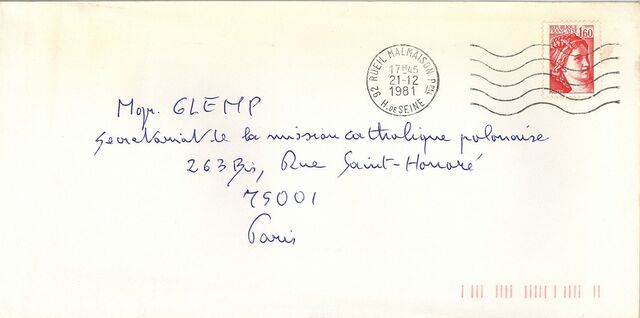 92 RUEIL MALMAISON PPAL
17H45
21-12
1981
H. DE SEINE
REPUBLIQUE FRANCAISE
1,60
Mgr. GLEMP
Secretariat de la mission catholique polonaise
263 Bis, Rue Saint-Honoré
75001
Paris